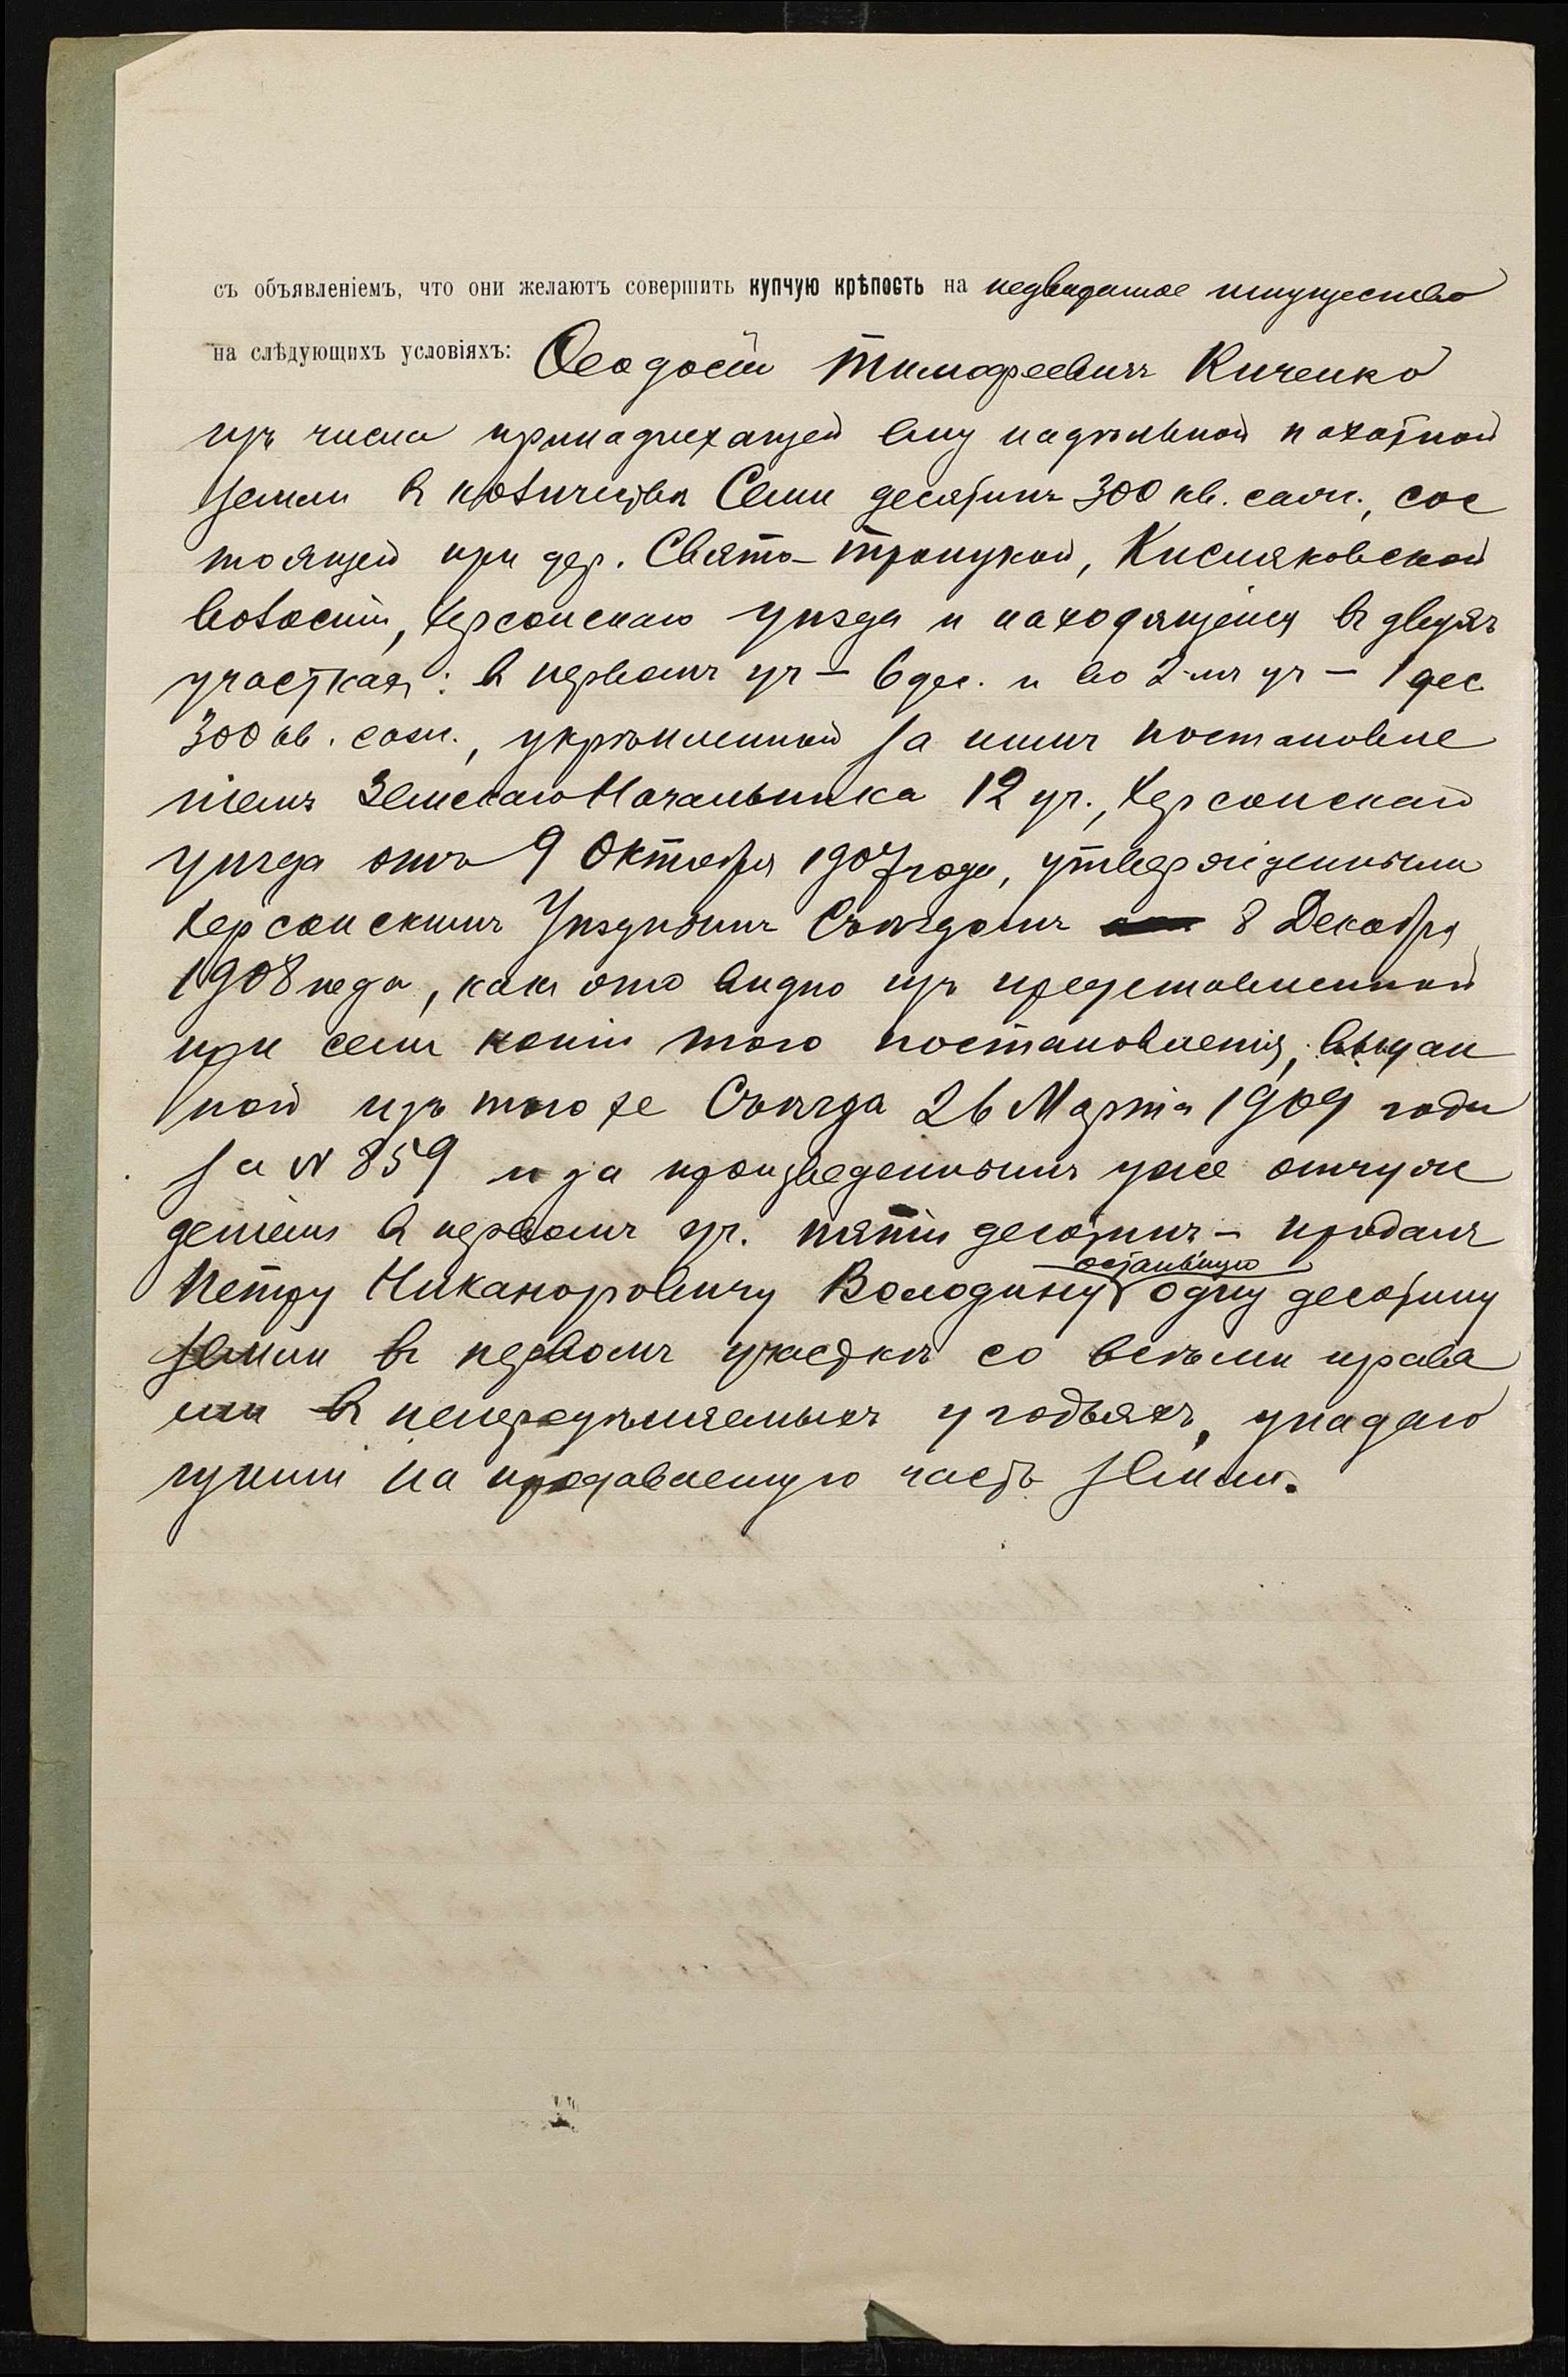 съ объявленіемъ, что они желаютъ совершить купчую крѣпость на недвижимое имущество
на слѣдующихъ условіяхъ: Ѳеодосій Тимофеевичъ Киченко
изъ числа принадлежащей ему надѣльной пахатной
земли въ количествѣ Семи десятинъ 300 кв. саж., сос
тоящей при дер. Свято-Троицкой, Кисляковской
волости, Херсонскаго уѣзда и находящейся въ двухъ
участкахъ: въ первомъ уч – 6 дес. и во 2-мъ уч – 1 дес
300 кв. саж., укрѣпленной за нимъ постановле
ніемъ Земскаго Начальника 12 уч., Херсонскаго
уѣзда отъ 9 Октября 1907 года, утвержденнымъ
Херсонскимъ Уѣзднымъ Съѣздомъ 8 Декабря
1908 года, какъ это видно изъ представленной
при семъ копіи того постановленія, выдан
ной изъ того же Съѣзда 26 Марта 1909 года
за N 859 и за произведеннымъ уже отчуж
деніемъ въ первомъ уч. пяти десятинъ – продалъ
Петру Никаноровичу Володину остальную одну десятину
земли въ первомъ участкѣ со всѣми права
ми въ непередѣляемыхъ угодьяхъ, упадаю
щими на продаваемую часть земли.